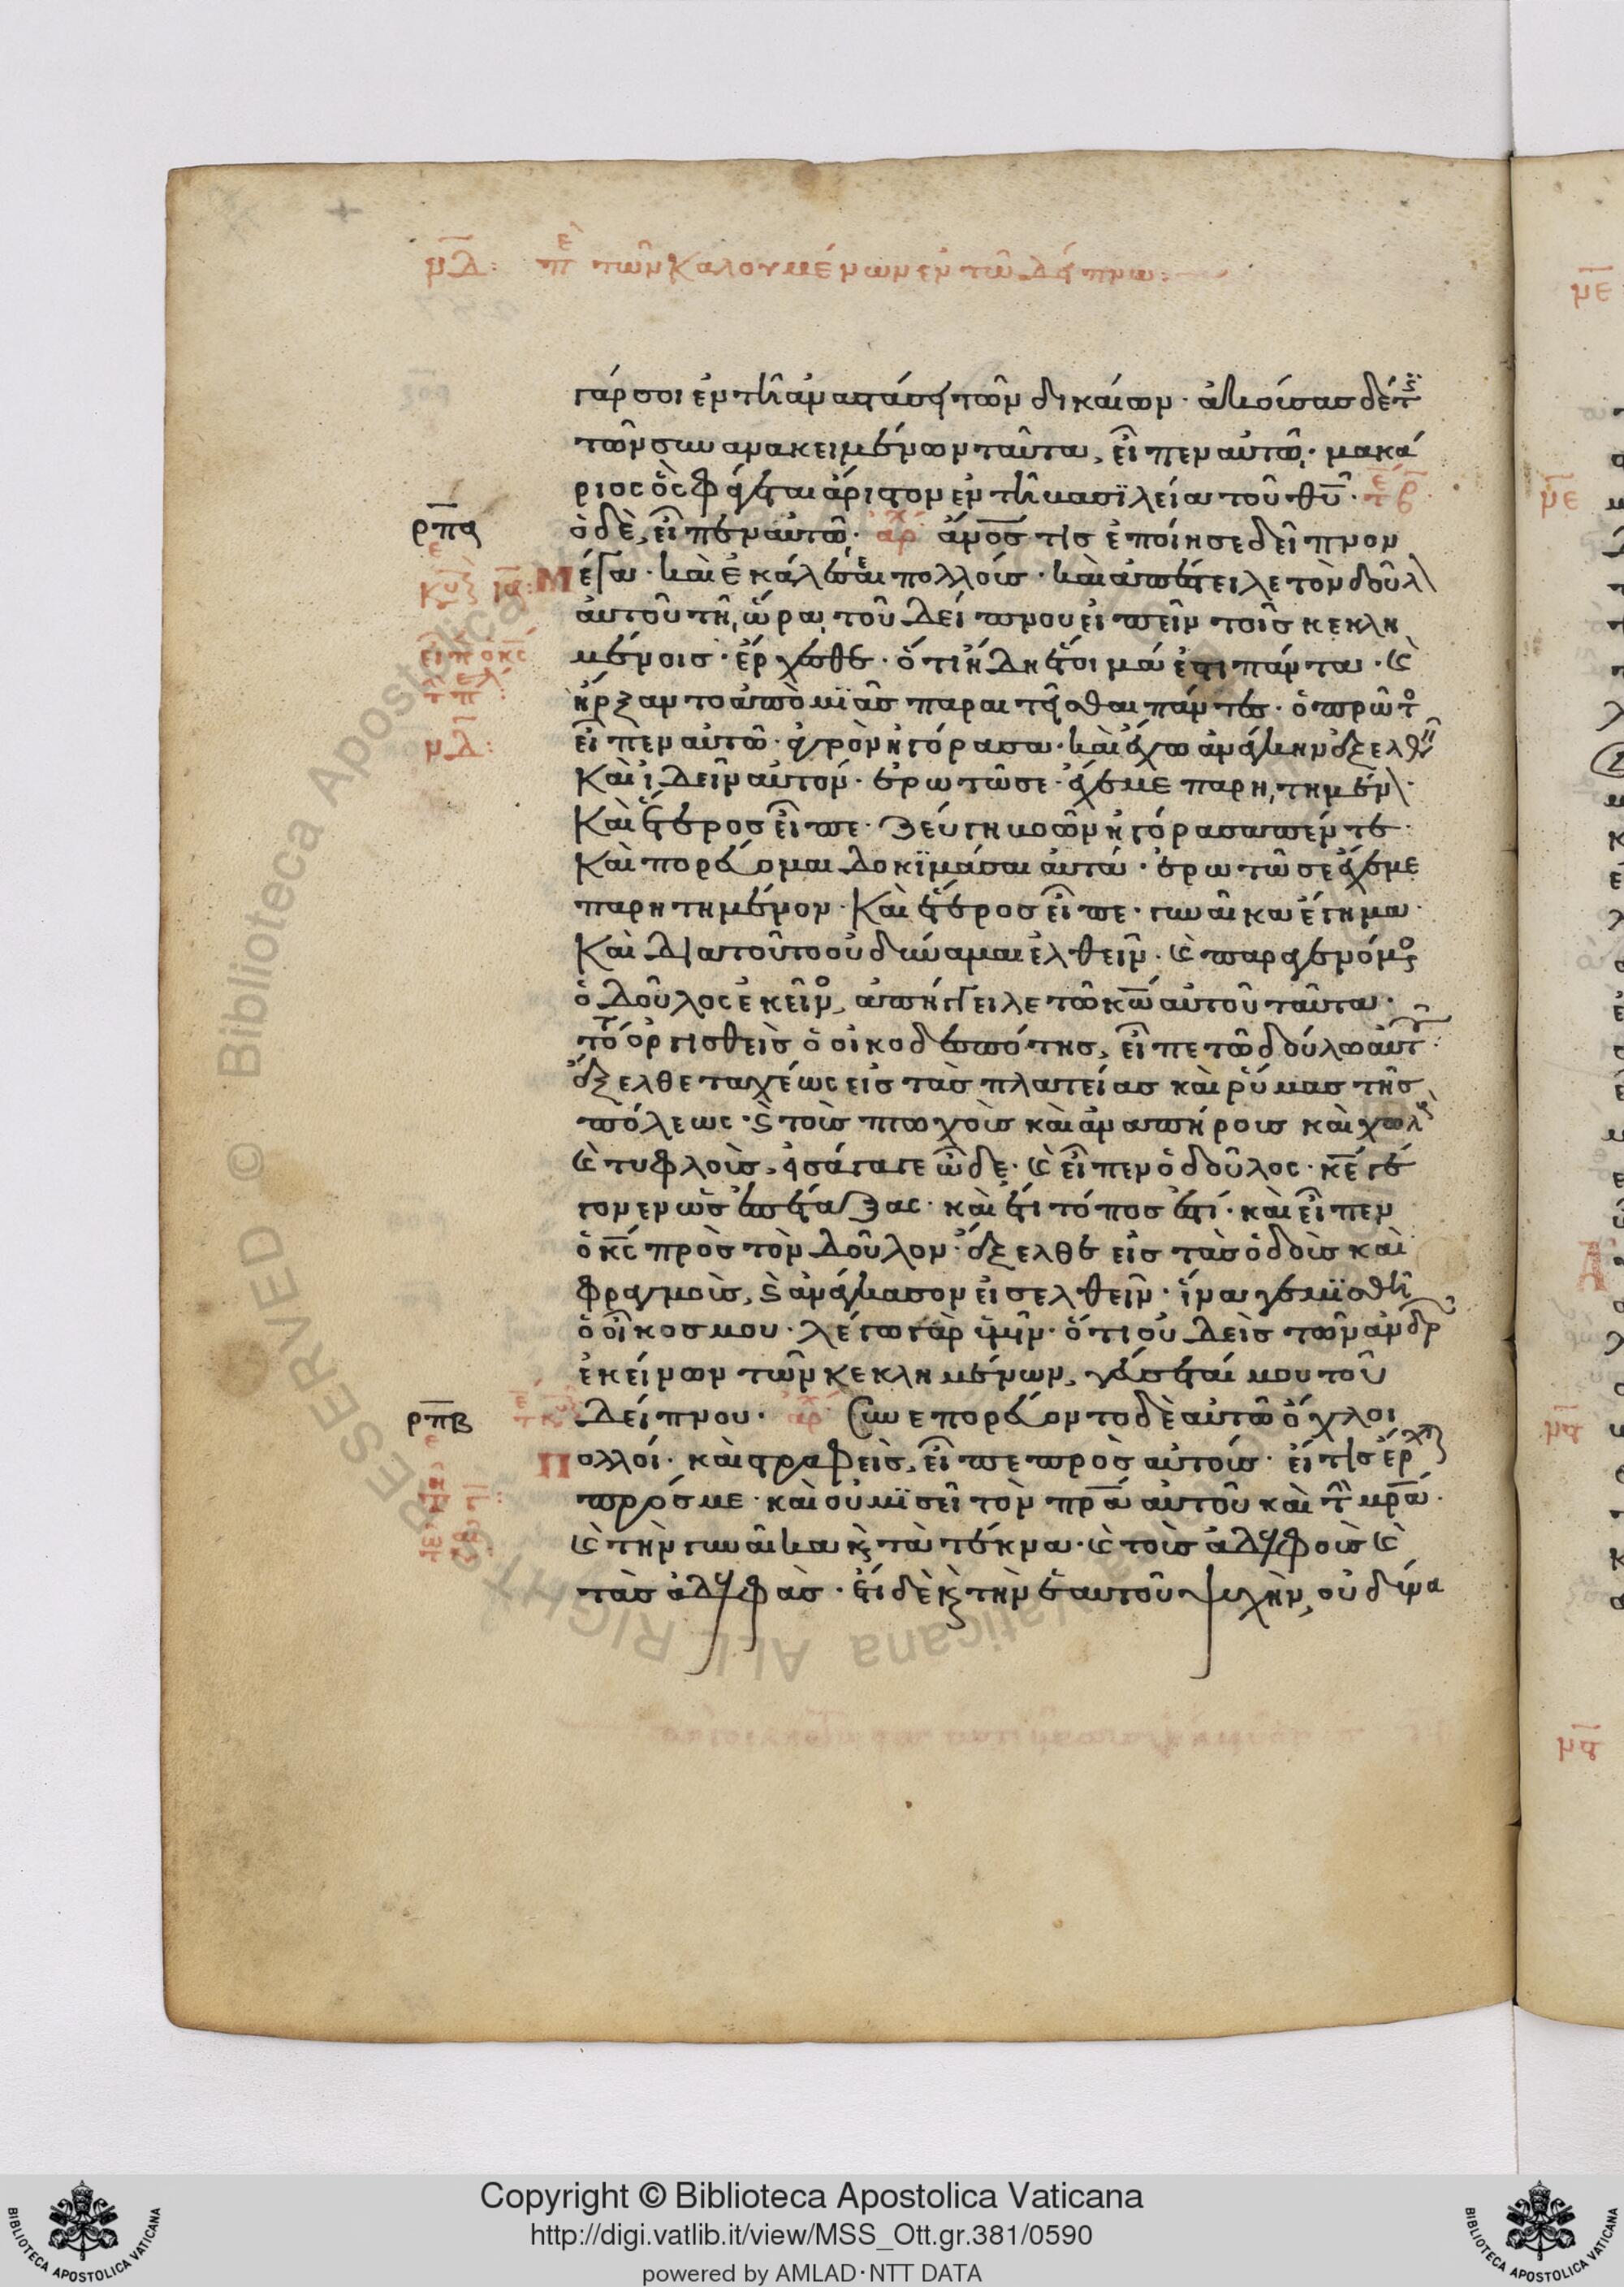 μδ: πε τῶν καλουμένων ἐν τῶ δείπνω:
γάρ σοι ἐν τῆ ἀναστάσει τῶν δικαίων· ἀκούσας δέ τις
τῶν συνανακειμένων ταῦτα, εἶπεν αὐτῶ· μακά
ριος ὃς φάγεται ἄριστον ἐν τῆ βασιλεία τοῦ θυ·
ρπα ὁ δὲ, εἶπεν αὐτῶ· ἀρχ ἄνος τίς ἐποίησε δεῖπνον
Μέγα· καὶ ἐκάλεσε πολλούς· καὶ ἀπέστειλε τὸν δοῦλ
αὐτοῦ τῆ ὥρα τοῦ δείπνου εἰπεῖν τοῖς κεκλη
μένοις· ἔρχεσθε· ὅτι ἤδη ἕτοιμά ἐστι πάντα· καὶ
ἤρξαντο ἀπὸ μιᾶς παραιτεῖσθαι πάντες· ὁ πρῶτο
μδ: εἶπεν αὐτῶ· ἀγρὸν ἠγόρασα· καὶ ἔχω ἀνάγκην ἐξελθεῖν
καὶ ἰδεῖν αὐτόν· ἐρωτῶ σε· ἔχε με παρητημέν·
καὶ ἕτερος εἶπε· ζεύγη βοῶν ἠγόρασα πέντε·
καὶ πορεύομαι δοκιμάσαι αὐτά· ἐρωτῶ σε ἔχε με
παρητημένον· καὶ ἕτερος εἶπε· γυναῖκα ἔγημα·
καὶ διατοῦτο οὐ δύναμαι ἐλθεῖν· καὶ παραγενόμενος
ὁ δοῦλος ἐκεῖνο, ἀπήγγειλε τῶ κω αὐτοῦ ταῦτα·
τότε ὀργισθεὶς ὁ οἰκοδεσπότης, εἶπε τῶ δούλω αὐτοῦ·
ἔξελθε ταχέως εἰς τὰς πλατείας καὶ ῥύμας τῆς
πόλεως· καὶ τοὺς πτωχοὺς καὶ ἀναπήρους καὶ χωλοὺς
καὶ τυφλοὺς, εἰσάγαγε ὧδε· καὶ εἶπεν ὁ δοῦλος· κε γέ
γονεν ὡς ἐπέταξας· καὶ ἔτι τόπος ἐστί· καὶ εἶπεν
ὁ κς πρὸς τὸν δοῦλον· ἔξελθε εἰς τὰς ὁδοὺς καὶ
φραγμοὺς, καὶ ἀνάγκασον εἰσελθεῖν· ἵνα γεμισθῆ
ὁ οἶκος μου· λέγω γὰρ ὑμῖν· ὅτι οὐδεὶς τῶν ἀνδρῶν
ἐκείνων τῶν κεκλημένων, γεύσεταί μου τοῦ
ρπβ δείπνου· ἀρχ Συνεπορεύοντο δὲ αὐτῶ ὄχλοι
Πολλοί· καὶ στραφεὶς, εἶπε πρὸς αὐτούς· εἴ τις ἔρχεται
πρός με· καὶ οὐ μισεῖ τὸν πρα αὐτοῦ καὶ τὴν μρα·
καὶ τὴν γυναῖκα καὶ τὰ τέκνα· καὶ τοὺς ἀδελφοὺς καὶ
τὰς ἀδελφὰς· ἔτι δὲ καὶ τὴν ἑαυτοῦ ψυχὴν, οὐ δύνα
Copyright © Biblioteca Apostolica Vaticana
http://digi.vatlib.it/view/MSS_Ott.gr.381/0590
powered by AMLAD·NTT DATA